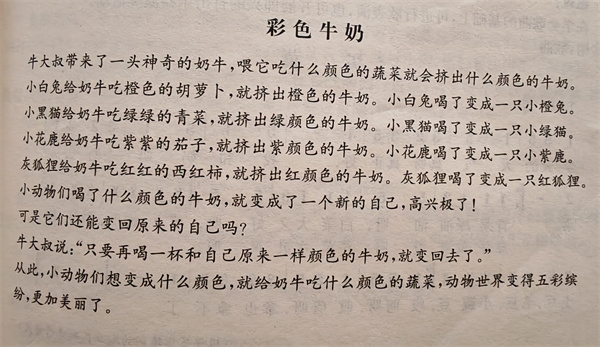 彩色牛奶
牛大叔带来了一头神奇的奶牛，喂它吃什么颜色的蔬菜就会挤出什么颜色的牛奶。
小白兔给奶牛吃橙色的胡萝卜，就挤出橙色的牛奶。小白兔喝了变成一只小橙兔。
小黑猫给奶牛吃绿绿的青菜，就挤出绿颜色的牛奶。小黑猫喝了变成一只小绿猫。
小花鹿给奶牛吃紫紫的茄子，就挤出紫颜色的牛奶。小花鹿喝了变成一只小紫鹿。
灰狐狸给奶牛吃红红的西红柿，就挤出红颜色的牛奶。灰狐狸喝了变成一只红狐狸。
小动物们喝了什么颜色的牛奶，就变成了一个新的自己，高兴极了！
可是它们还能变回原来的自己吗？
牛大叔说：“只要再喝一杯和自己原来一样颜色的牛奶，就变回去了。”
从此，小动物们想变成什么颜色，就给奶牛吃什么颜色的蔬菜，动物世界变得五彩缤
纷，更加美丽了。